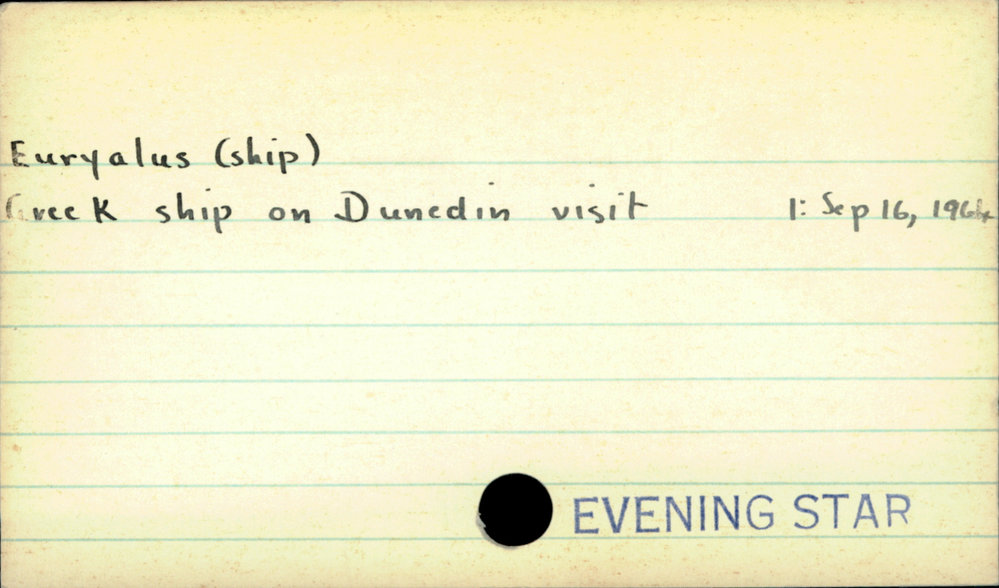 Euryalus (ship)
Greek ship on Dunedin visit 1: Sep 16, 1964
EVENING STAR